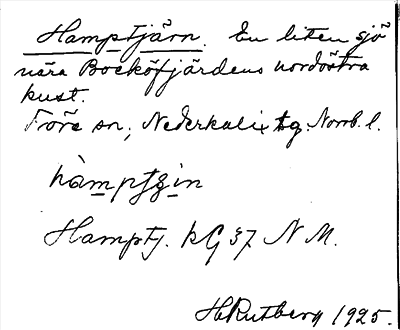 Hamptjärn. En liten sjö
nära Bocköfjärdens nordöstra
kust.
Töre sn, Nederkalix tg. Norrb. l.
hàmptʒin
Hamptj. kG 37 N M.
H Rutberg 1925.